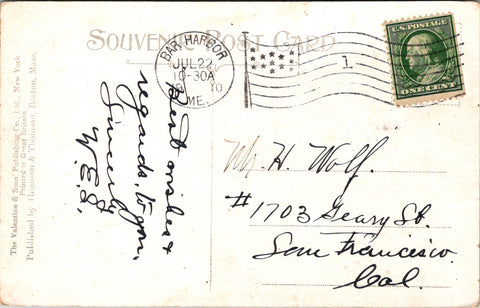 SOUVENIR POST CARD
BAR HARBOR
JUL 22
10-30A
ME.
1
U.S. POSTAGE
ONE CENT
Best wishes &
regards, to you.
Sincerely
W.E.S.
Mr. H. Wolf.
#1703 Geary St.
San Francisco
Cal.
The Valentine & Sons' Publishing Co., Ltd., New York
Printed in Great Britain
Published by Thomson & Thomson, Boston, Mass.